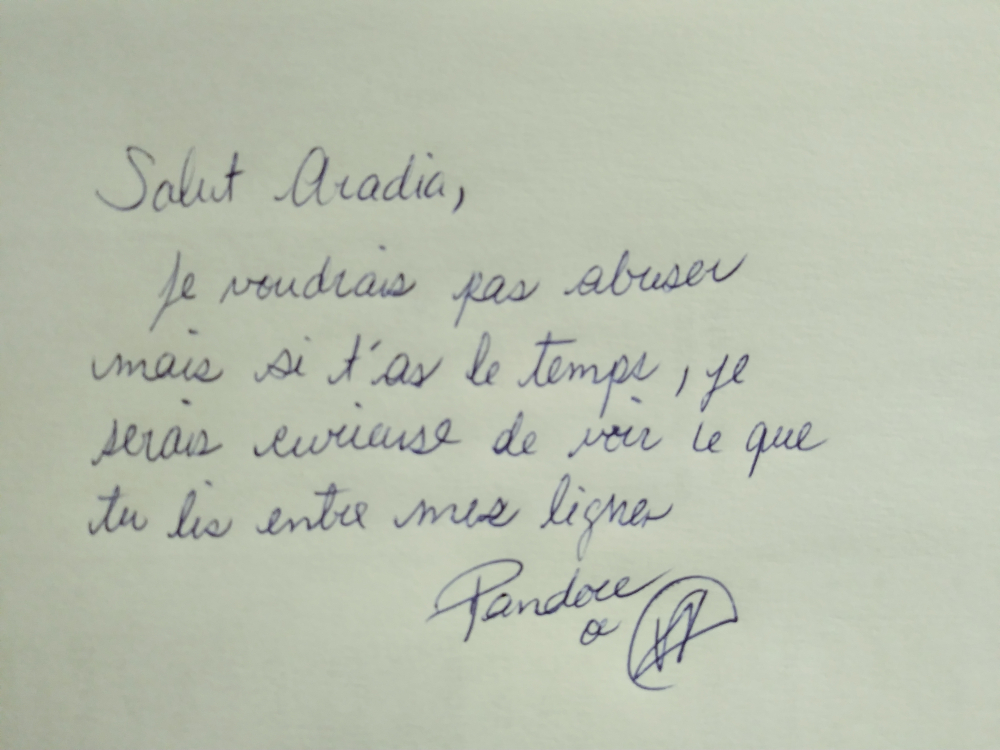 Salut Aradia,
Je voudrais pas abuser
mais si t'as le temps, je
serais curieuse de voir ce que
tu lis entre mes lignes
Pandore